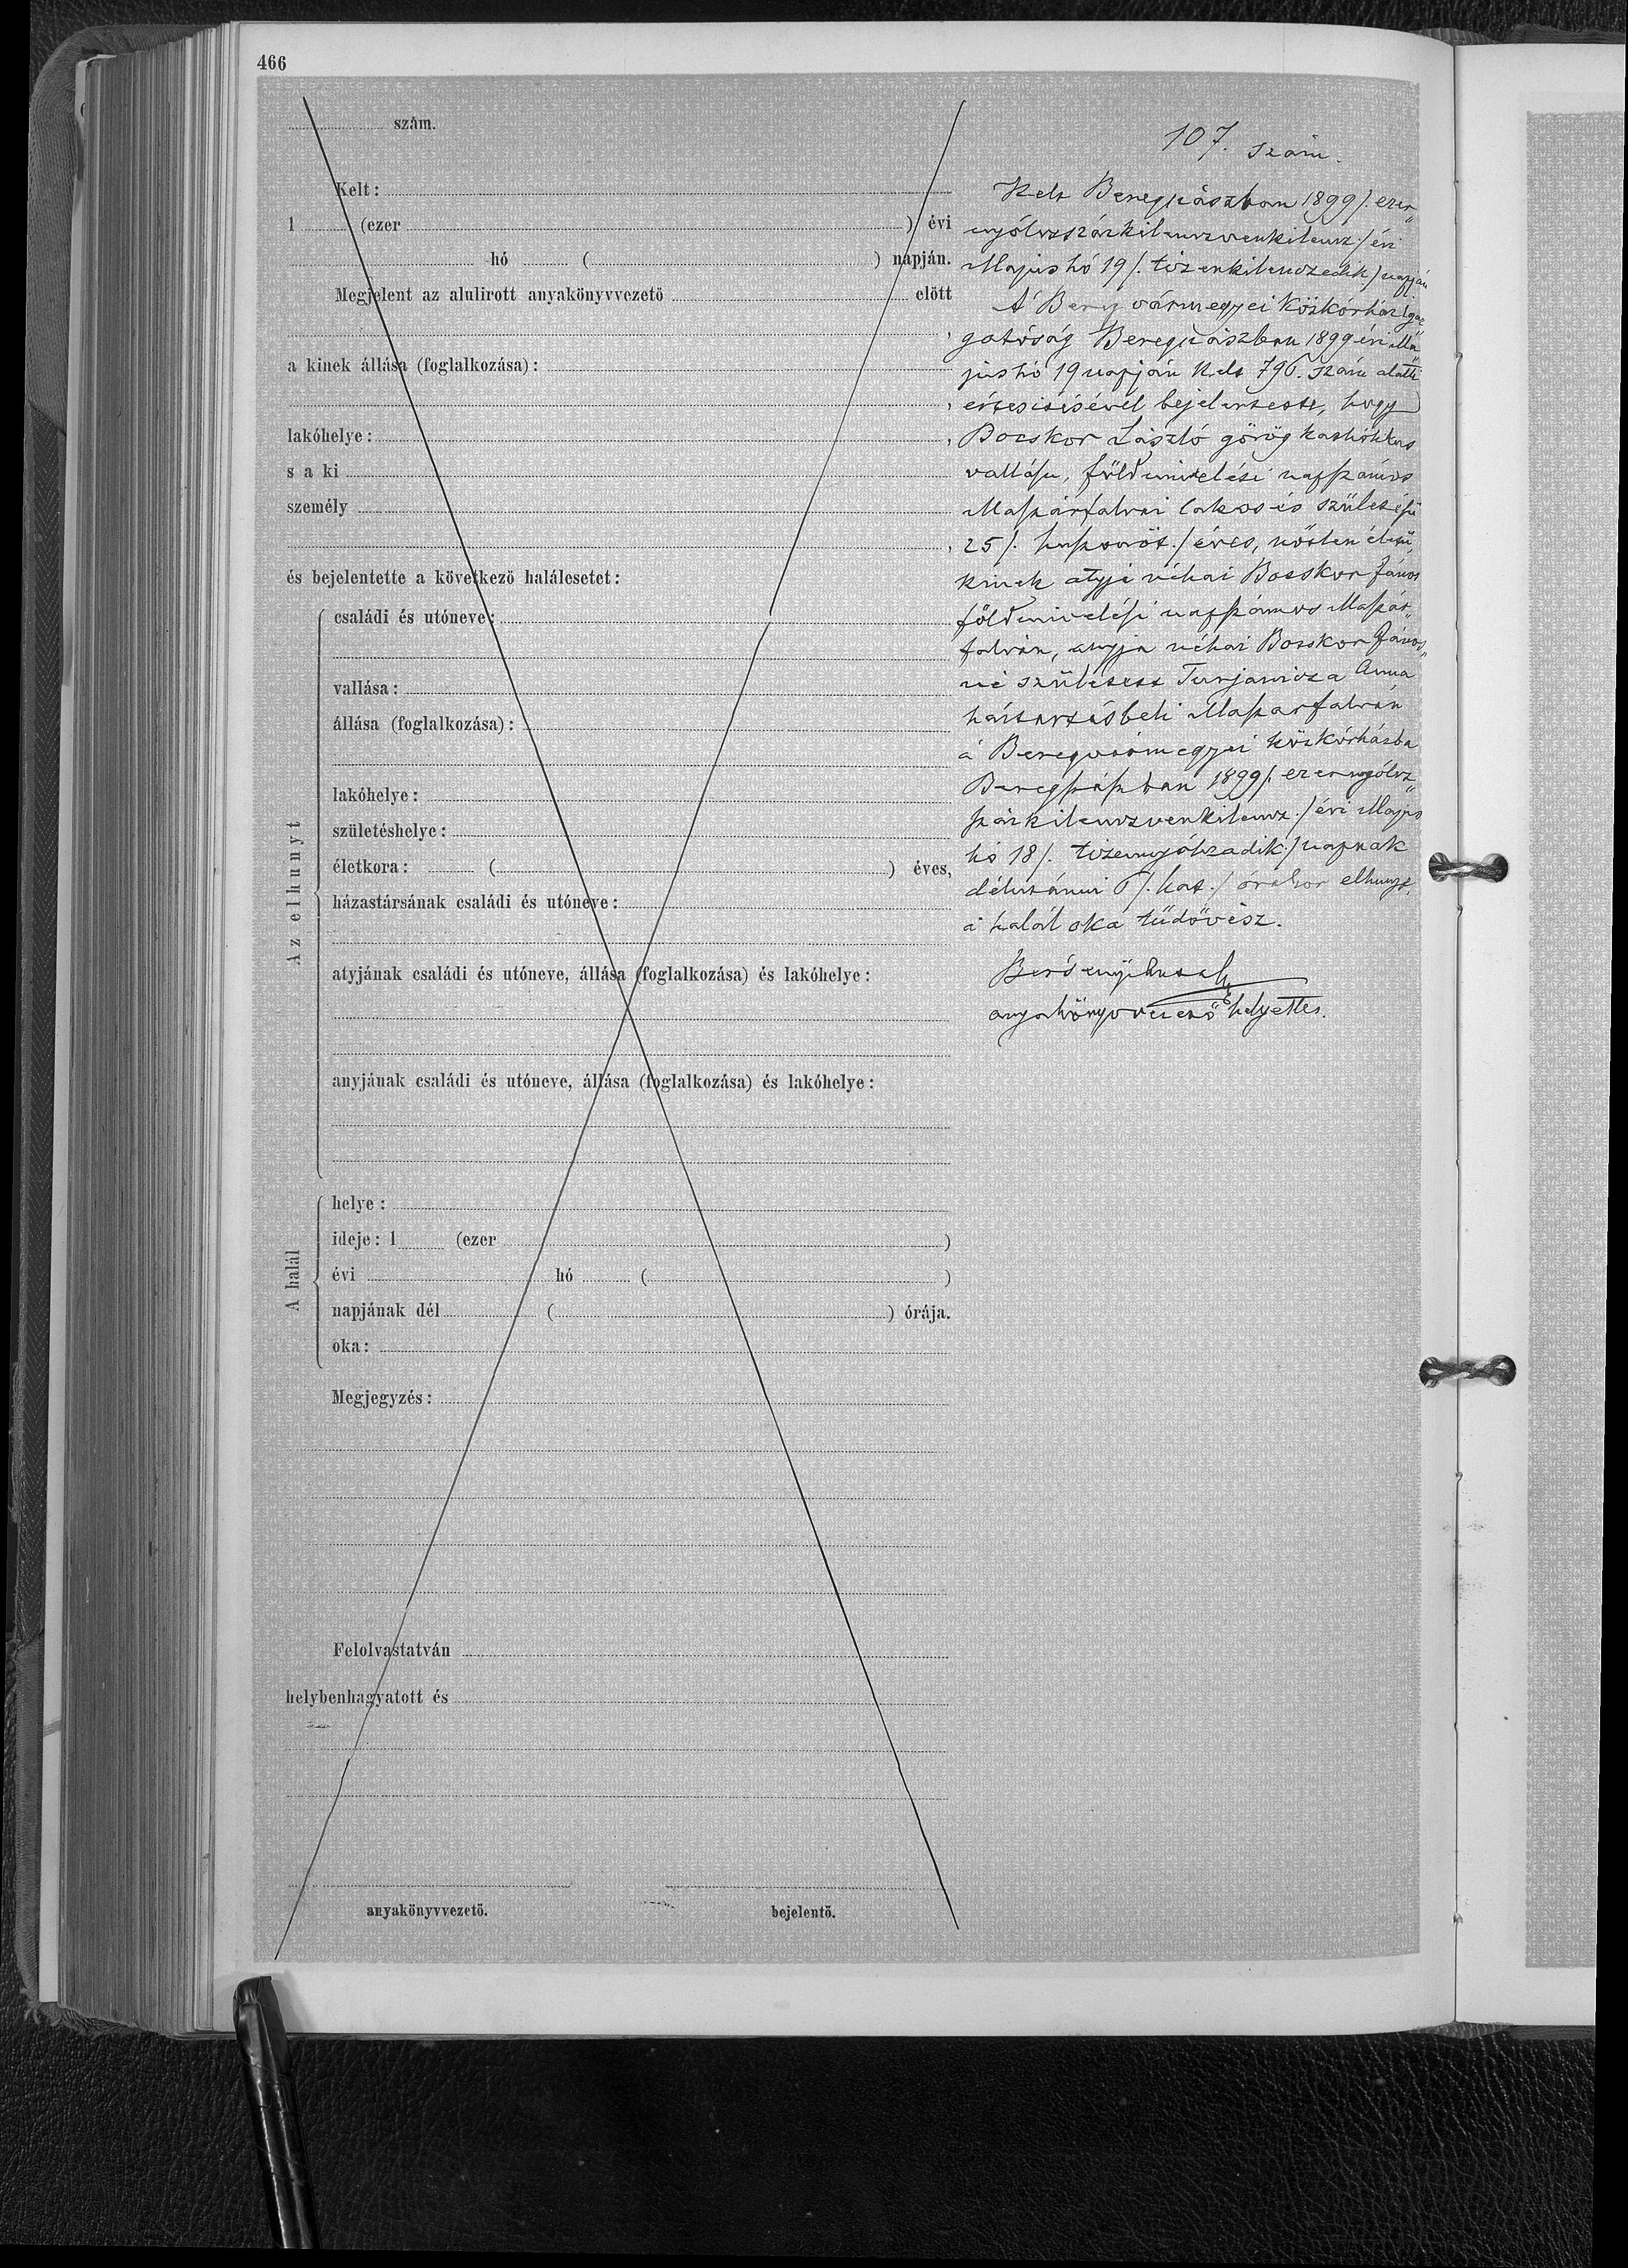 466
szám.
Kelt:
1 (ezer ) évi
hó ( ) napján.
Megjelent az alulirott anyakönyvvezető előtt
a kinek állása (foglalkozása):
lakóhelye:
s a ki
személy
és bejelentette a következő halálesetet:
Az elhunyt
családi és utóneve:
vallása:
állása (foglalkozása):
lakóhelye:
születéshelye:
életkora: ( ) éves,
házastársának családi és utóneve:
atyjának családi és utóneve, állása (foglalkozása) és lakóhelye:
anyjának családi és utóneve, állása (foglalkozása) és lakóhelye:
A halál
helye:
ideje: 1 (ezer )
évi hó ( )
napjának dél ( ) órája.
oka:
Megjegyzés:
Felolvastatván
helybenhagyatott és
anyakönyvvezető. bejelentő.
107. szám.
Kelt Beregszászban 1899/. ezer„
nyólczszázkilenczvenkilencz./ évi
Majus hó 19/. tizenkilenczedik/ napján
A Bereg vármegyei közkórház igaz„
gatóság Beregszászban 1899 évi Ma„
jus hó 19 napján kelt 796. szám alatti
értesitésével bejelentette, hogy
Bocskor László görög katholikus
vallásu, földmivelési napszámos
Maszárfalvai lakos és születésü
25/. huszonöt./ éves, nőtlen életü
kinek atyja néhai Bocskor János
földmivelési napszámos Maszár„
falván, anyja néhai Bocskor János„
né született Turjanicza Anna
háztartásbeli Maszárfalván
a Beregvármegyei közkórházba
Beregszászban 1899/. ezernyólcz„
százkilenczvenkilencz./ évi Majus
hó 18/. tizennyólczadik./ napnak
délutánni 6/. hat./ órakor elhunyt.
a halál oka tüdővész.
anyakönyvvezető helyettes.